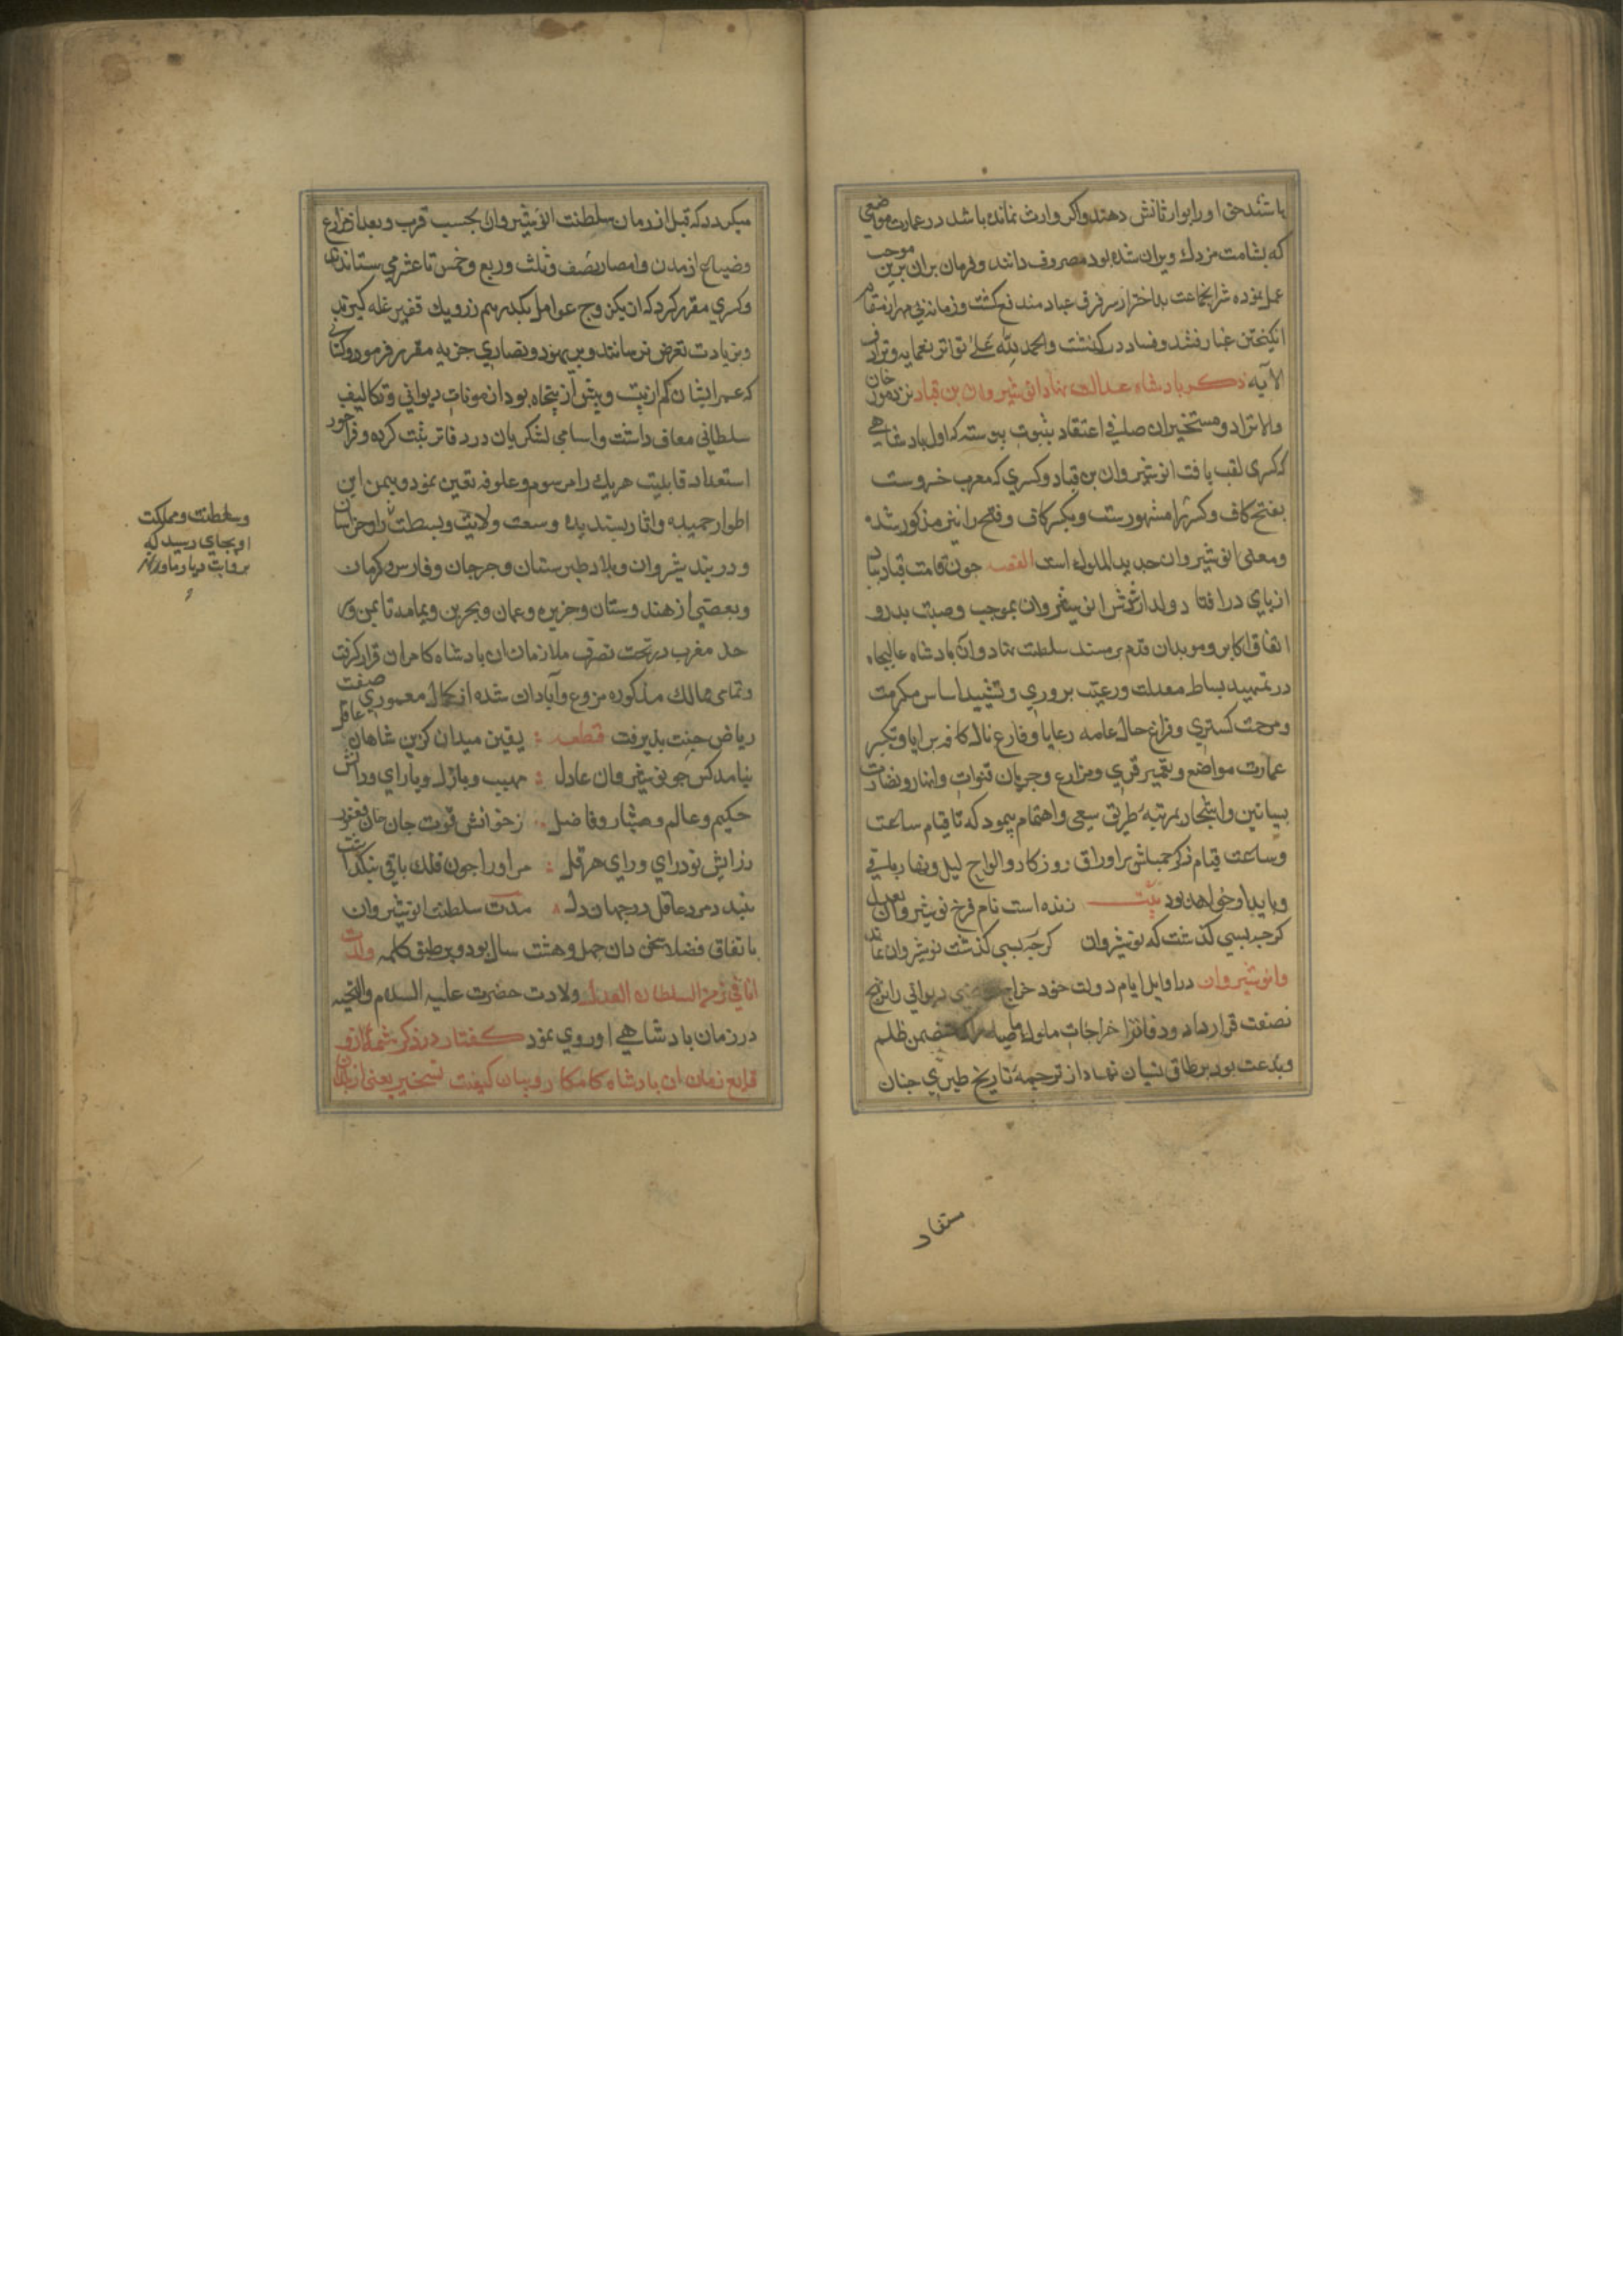 باشند حق او را بوارثانش دهند و اکر وارث نمانده باشد در عمارت موضعی
که بشامت مزدک ویران شده بود مصروف دانند و فرمان بران برین موجب
عمل نموده شر ایجماعت بد اختر از سر فرق عباد مندفع کشت و زمانه بی مهر از مقام
انکیختن غبار فتنه و فساد در کذشت والحمد لله علی تواتر نعمایه و ترادف
الآیه ذکر پادشاه عدالت نهاد انوشیروان بن قباد نزد مورخان
والانژاد و مستخبران صافی اعتقاد بثبوت پیوسته که اول پادشاهی
که کسری لقب یافت انوشیروان بن قباد و کسری که معرب خسروست
بفتح کاف و کسر را مشهورست و بکسر کاف و فتح را نیز مذکور شده
ومعنی انوشیروان جدید الملوک است القصه چون قامت قباد
از پای در افتاد ولد ارشدش انوشیروان بموجب وصیت پدر و
اتفاق اکابر و موبدان قدم بر مسند سلطنت نهاد و آن پادشاه عالیجاه
در تمهید بساط معدلت و رعیت پروری و تشیید اساس مکرمت
و مرحمت کستری و فراغ حال عامه رعایا و فارغ بال کافه برایا و تکبیر
عمارت مواضع و تعمیر قری و مزارع و جریان قنوات و انهار و نضارت
بساتین و اشجار بمرتبه طریق سعی و اهتمام پیمود که تا قیام ساعت
و ساعت قیام ذکر جمیلش بر اوراق روزکار و الواح لیل و نهار باقی
و پایدار خواهد بود بیت زنده است نام فرخ نوشیروان بعدل
کرچه بسی کذشت که نوشیروان کرچه بسی کذشت نوشیروان نماند
وانوشیروان در اوایل ایام دولت خود خراج دیوانی را بر نهج
نصفت قرار داد و دفاتر اخراجات ملوک ماضیه را که متضمن ظلم
و بدعت بود بر طاق نسیان نهاد از ترجمه تاریخ طبری چنان
مستفاد
میکردد که قبل از زمان سلطنت انوشیروان بحسب قرب و بعد از مزارع
و ضیاع از مدن و امصار نصف و ثلث و ربع و خمس تا عشر می ستاندند
و کسری مقرر کرد که از یکزوج عوامل یکدرهم نزر و یک قفیز غله کیرند
و بزیادت تعرض نرسانند و بر یهود و نصاری جزیه مقرر فرمود و کسانی
که عمر ایشان کم از بیست و بیش از پنجاه بود از مونات دیوانی و تکالیف
سلطانی معاف داشت و اسامی لشکریان در دفاتر ثبت کرده و فراخور
استعداد قابلیت هریک را مرسوم و علوفه تعین نمود و بیمن این
اطوار حمیده و اثار پسندیده وسعت ولایت و بسطت را و خراسان
و دربند شیروان و بلاد طبرستان و جرجان و فارس و کرمان
و بعضی از هندوستان و جزیره و عمان و بحرین و یمامه تا یمن و
حد مغرب در تحت تصرف ملازمان ان پادشاه کامران قرار کرفت
و تمامی ممالک مذکوره مزروع و آبادان شده از کمال معموری صفت
ریاض جنت پذیرفت قطعه یقین میدان کزین شاهان عاقل
نیامد کس چو نوشیروان عادل مهیب و باذل و با رای و دانش
حکیم و عالم و هشیار و فاضل زخوانش قوت جان خان فغفور
ز رایش نور رای و رای هرقل مر او را چون فلک باقی بنکذاشت
نبندد مرد عاقل در جهان دل مدت سلطنت انوشیروان
باتفاق فضلا سخن دان چهل و هشت سال بود و بر طبق کلمه ولدت
انا فی زمن السلطان العدل ولادت حضرت علیه السلام والتحیه
در زمان پادشاهی او روی نمود کفتار در ذکر شمه از و
قایع زمان ان پادشاه کامکار و بیان کیفیت تسخیر بعضی از بلدان
و سلطنت و مملکت
او بجای رسید که
بروایت دیار ماوراء النهر